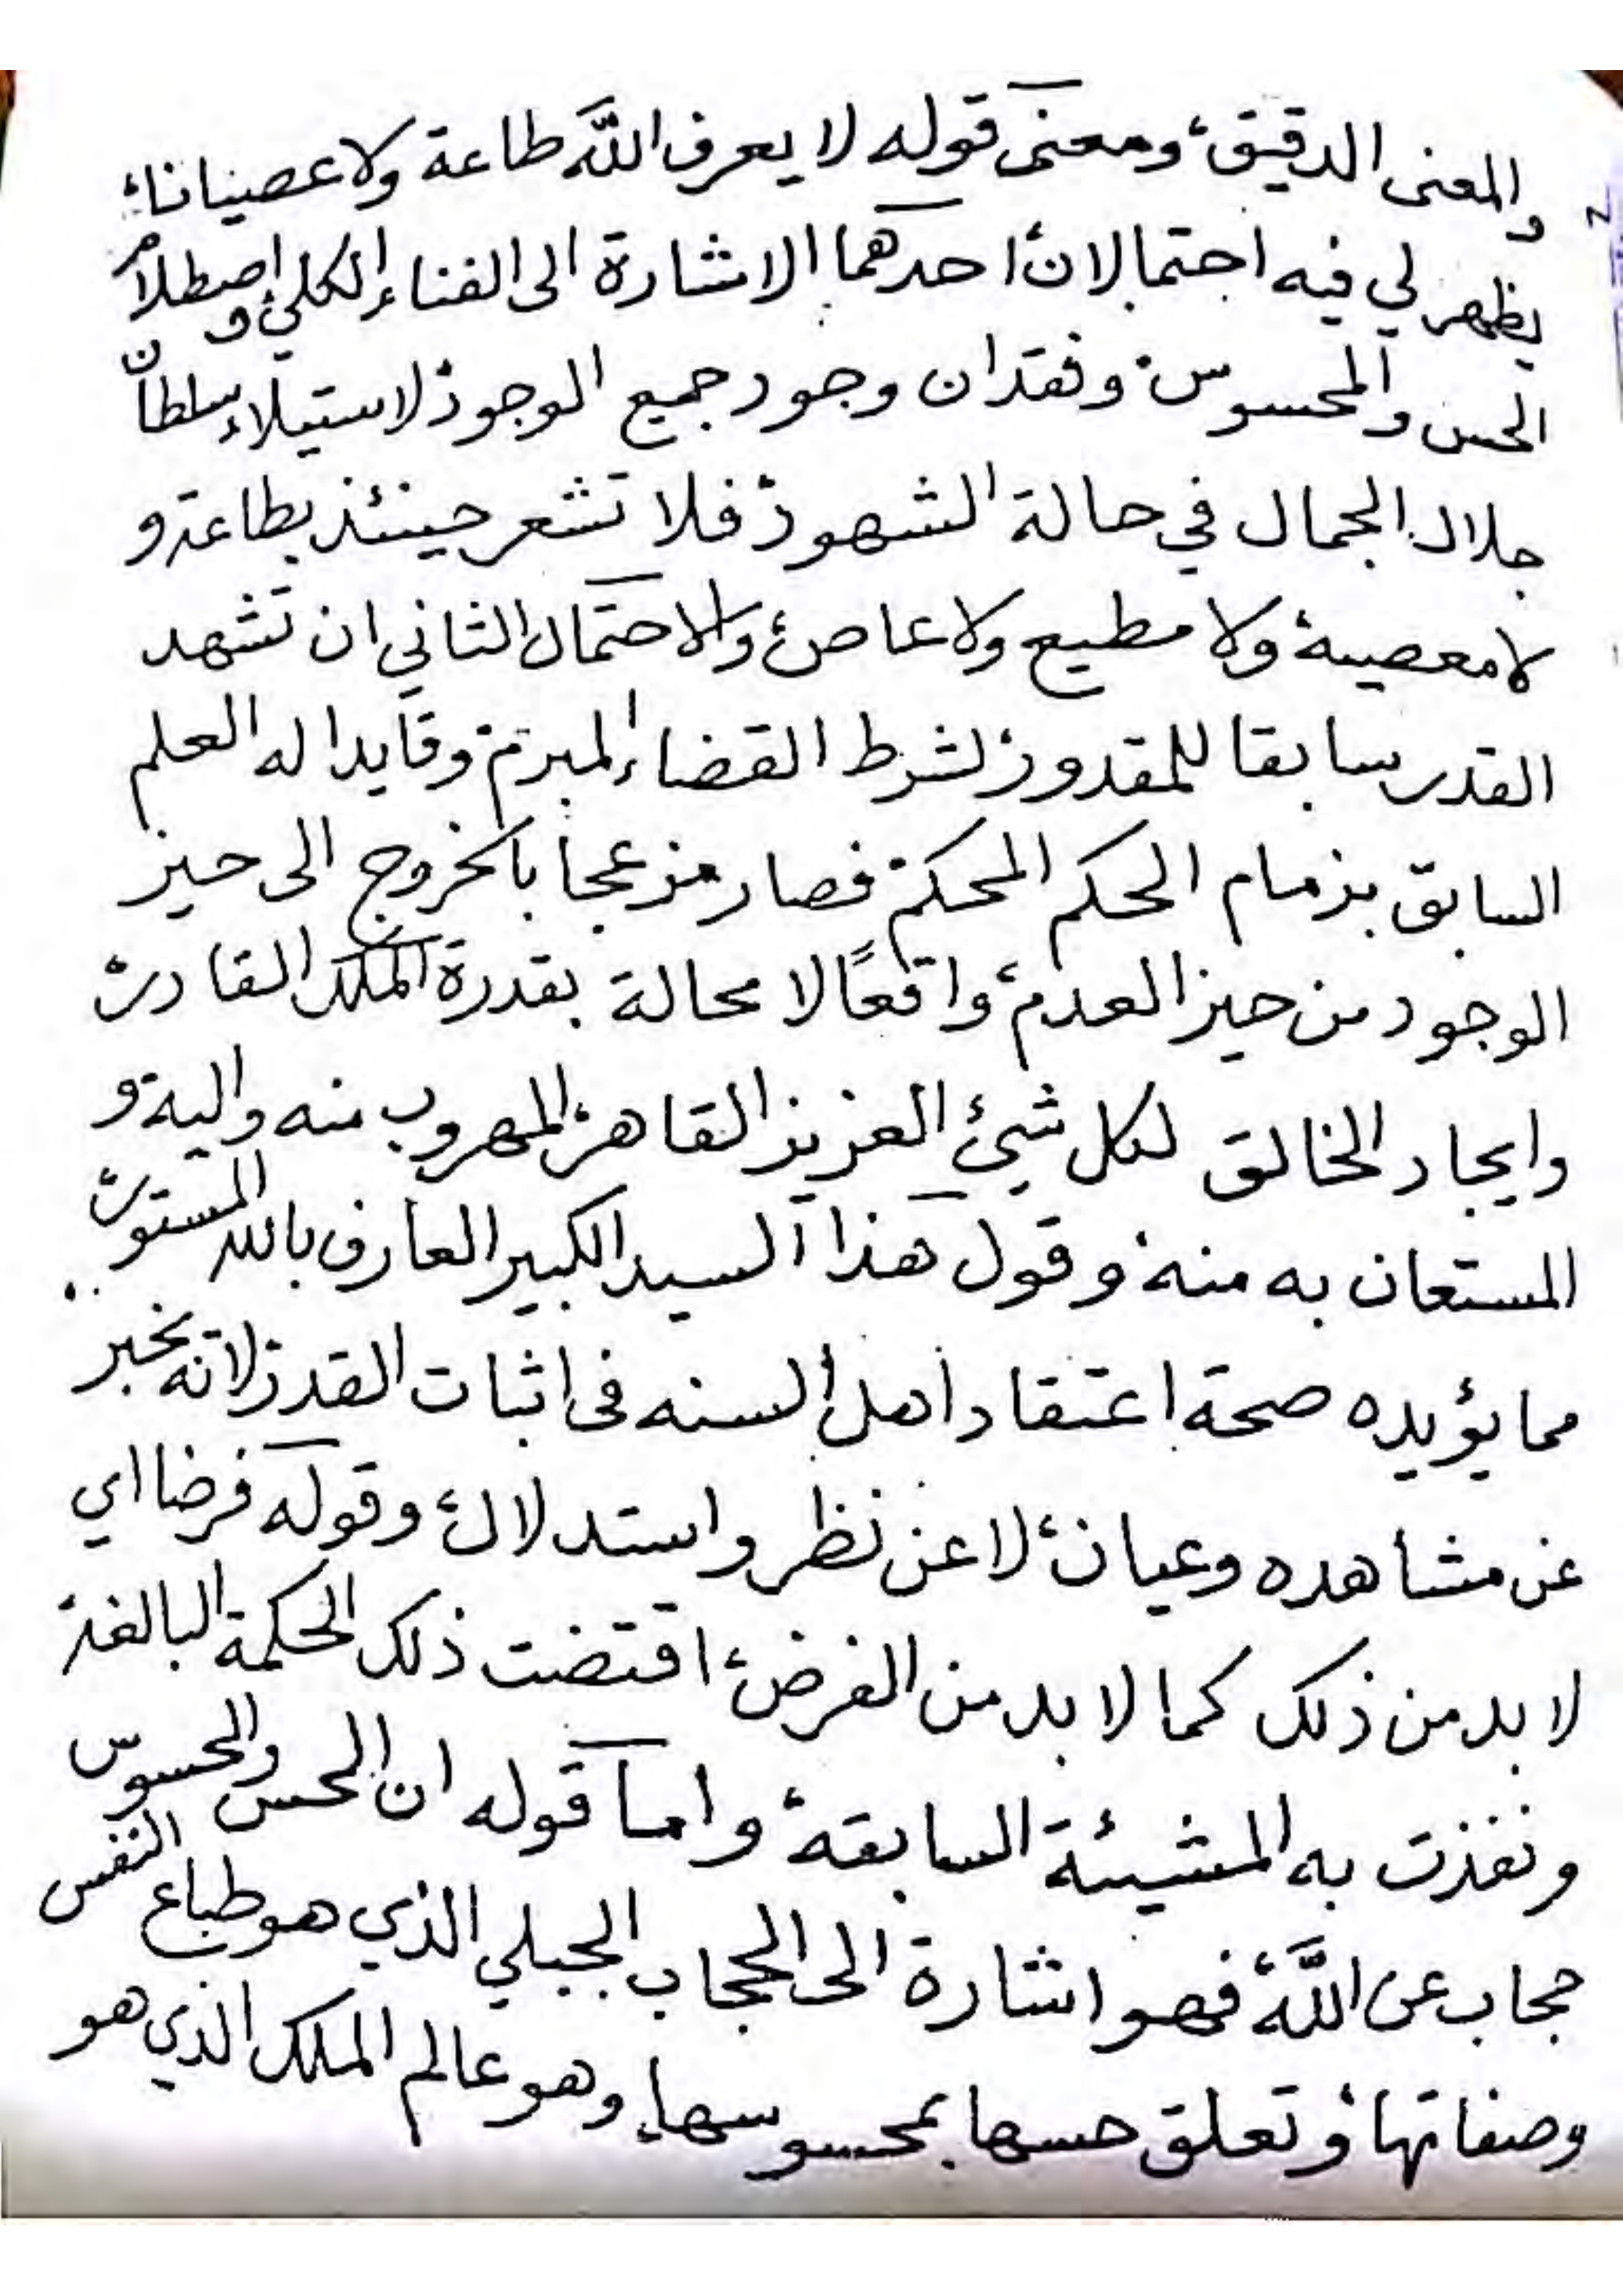 والمعنى الدقيق، ومعنى قوله لا يعرف الله طاعة ولا عصيانا،
يظهر لي فيه احتمالان، احدهما الاشارة الى الفناء الكلي، واصطلام
الحس والمحسوس، وفقدان وجود جميع الوجود، لاستيلاء سلطان
جلال الجمال في حالة الشهود، فلا تشعر حينئذ بطاعة، و
لا معصية، ولا مطيع ولا عاص، والاحتمال الثاني ان تشهد
القدر سابقا للمقدور، لشرط القضاء المبرم، وقايدا له العلم
السابق بزمام الحكم المحكم، فصار منزعجا بالخروج الى حيز
الوجود من حيز العدم، واقعًا لا محالة بقدرة الملك القادر،
وايجاد الخالق لكل شيئ العزيز القاهر، المهروب منه واليه، و
المستعان به منه، وقول هذا السيد الكبير العارف بالله المستور،
مما يؤيده صحة اعتقاد اهل السنه في اثبات القدر، لانه يخبر
عن مشاهده وعيان، لا عن نظر واستدلال، وقوله فرضا اي
لا بد من ذلك كما لا بد من الفرض، اقتضت ذلك الحكمة البالغة،
ونفذت به المشيئة السابقة، واما قوله ان الحس والمحسوس
حجاب عن الله، فهو اشارة الى الحجاب الجبلي الذي هو طباع النفس
وصفاتها، وتعلق حسها بمحسوسها، وهو عالم الملك الذي هو